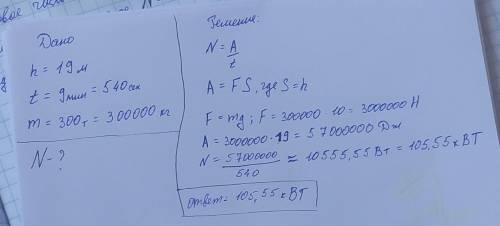 Дано
h = 19 м
t = 9 мин = 540 сек
m = 300 т = 300000 кг
N - ?
Решение:
N = A/t
A = FS, где S = h
F = mg; F = 300000 · 10 = 3000000 Н
A = 3000000 · 19 = 57000000 Дж
N = 57000000/540 = 10555,55 Вт = 105,55 кВТ
ответ = 105,55 кВТ